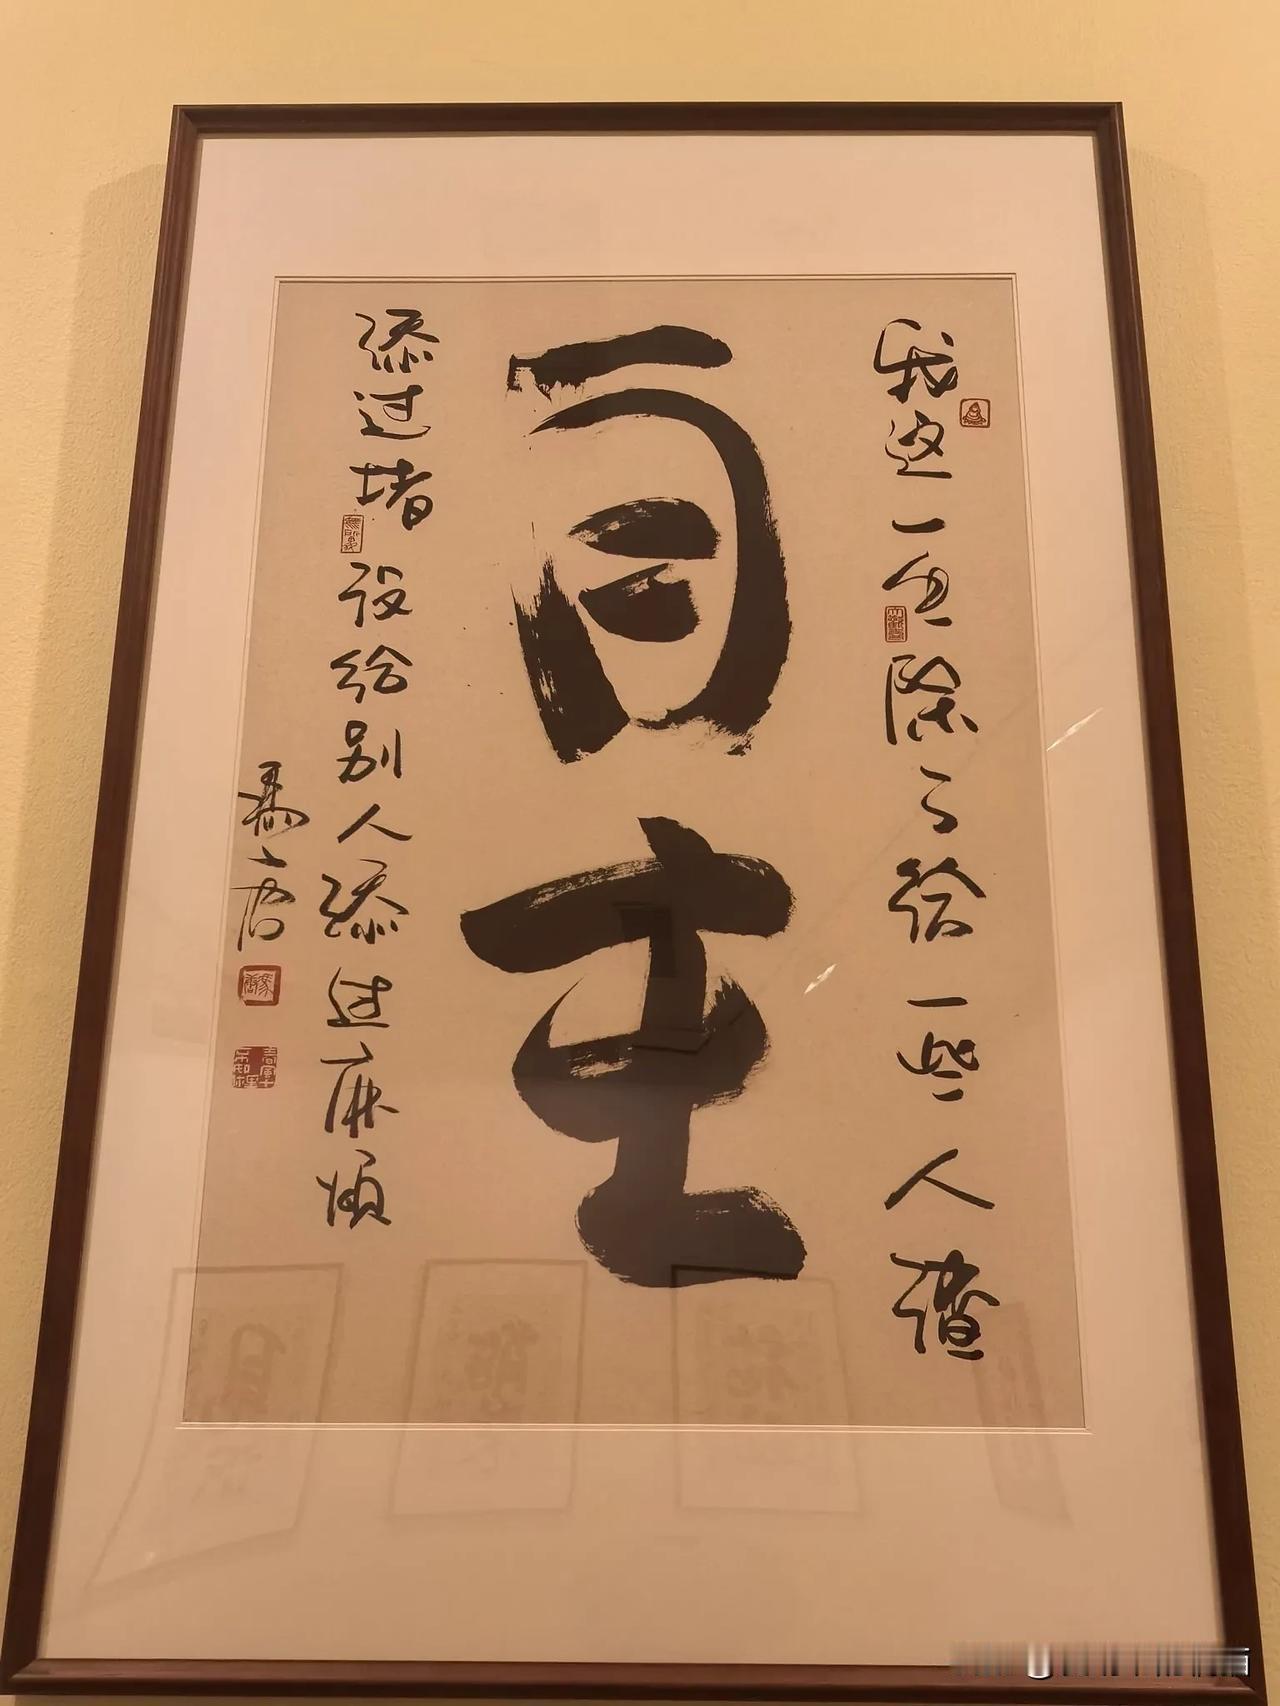 我这一生除了给一些人渣
自主
添过堵 没给别人添过麻烦
馮唐